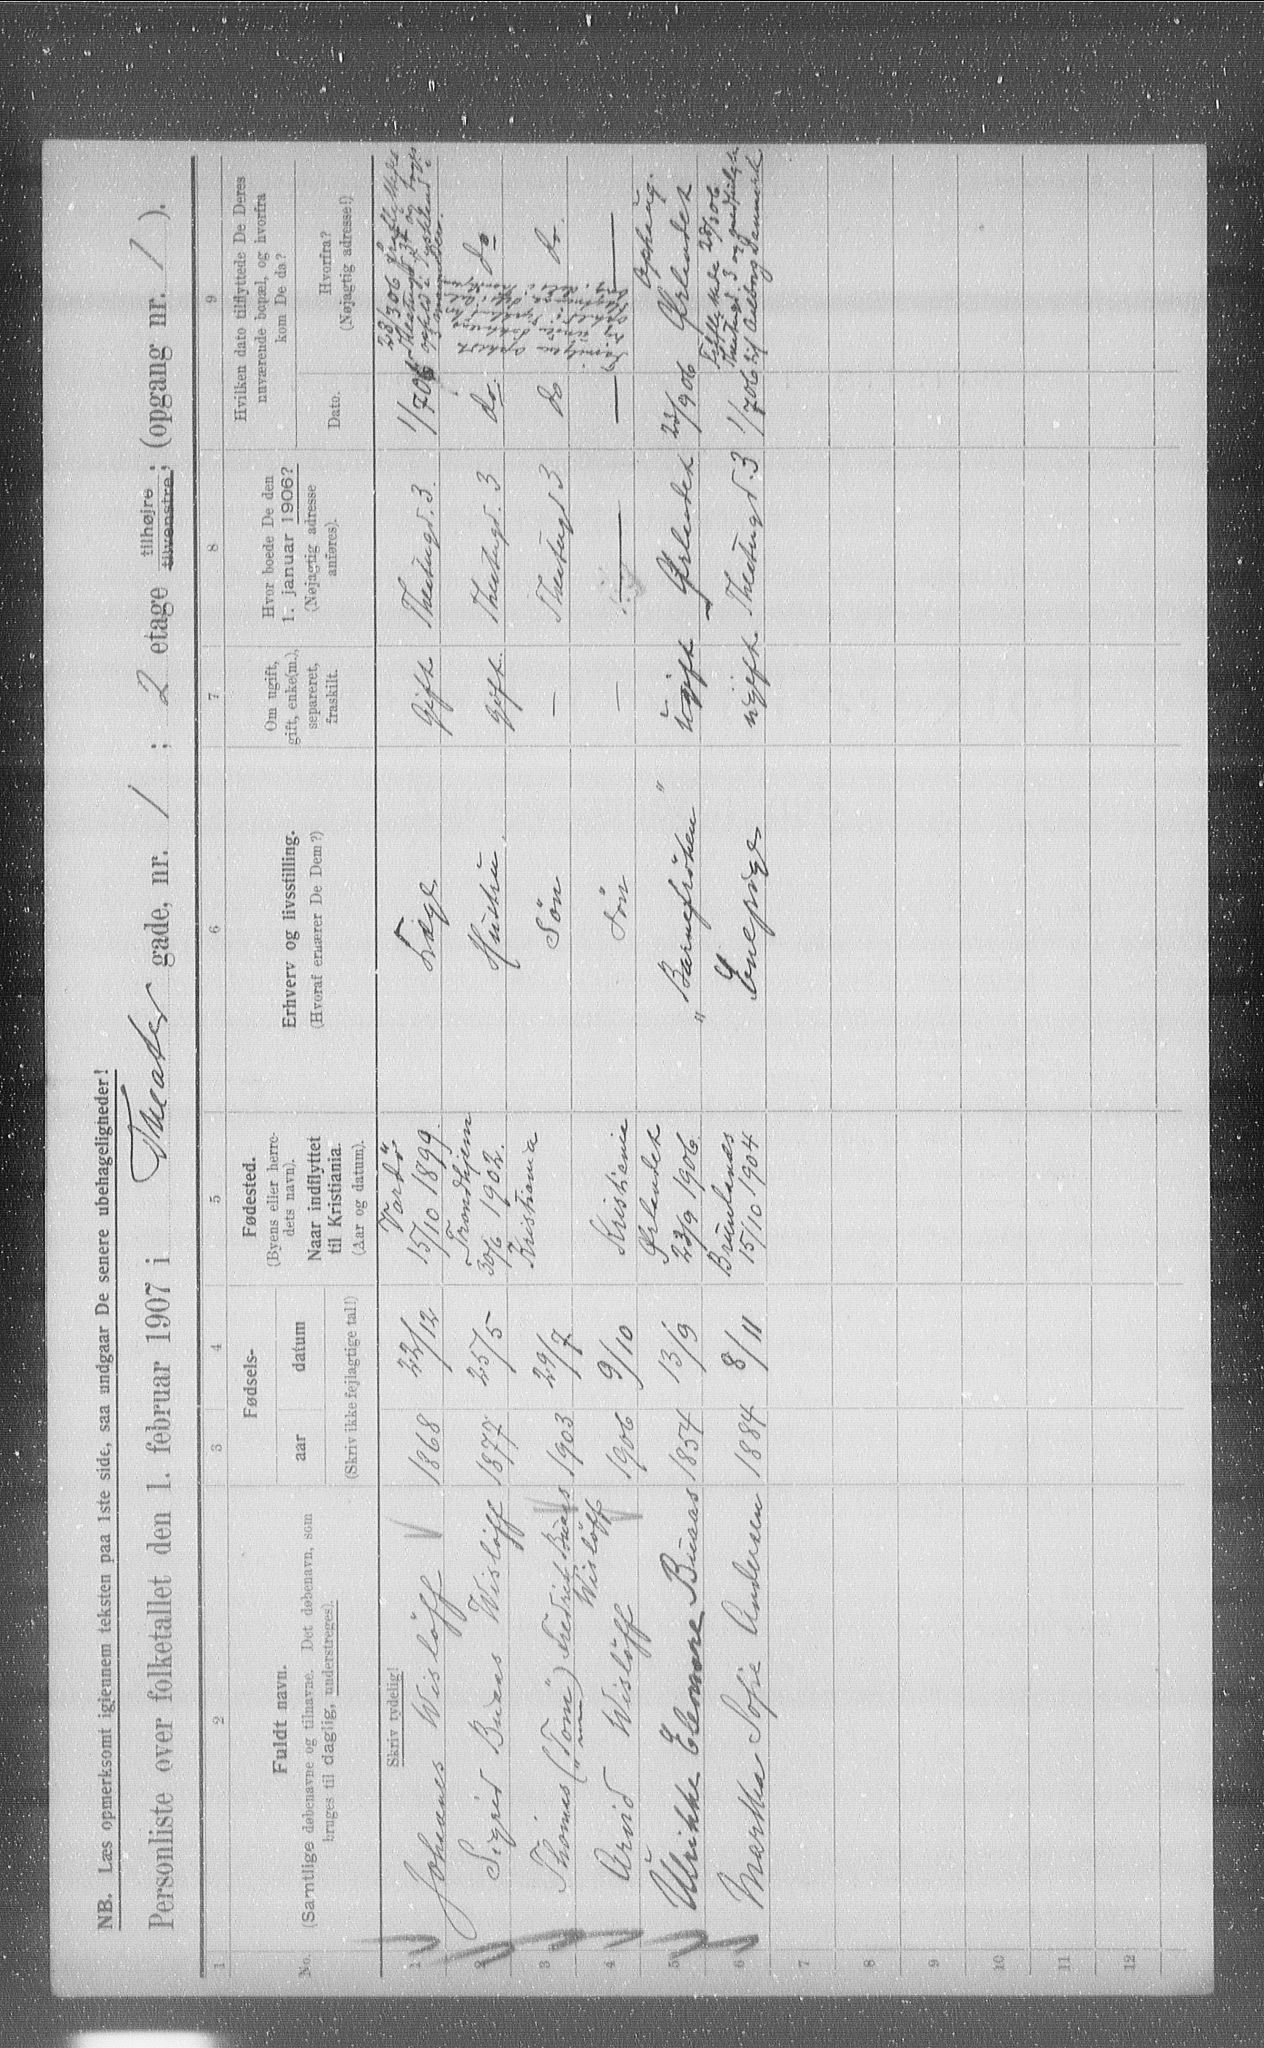 NB. Læs opmerksomt igjennem teksten paa 1ste side, saa undgaar De senere ubehageligheder!
Personliste over folketallet den 1. februar 1907 i Theater gade, nr. 1 ; 2 etage tilhøjre tilvenstre; (opgang nr. 1 ).
1 2 3 4 5 6 7 8 9
No.
Fuldt navn.
(Samtlige døbenavne og tilnavne. Det døbenavn, som
bruges til daglig, understreges).
Fødsels-
aar datum
(Skriv ikke fejlagtige tal!)
Fødested.
(Byens eller herre-
dets navn).
Naar indflyttet
til Kristiania.
(Aar og datum).
Erhverv og livsstilling.
(Hvoraf ernærer De Dem?)
Om ugift,
gift, enke(m.),
separeret,
fraskilt.
Hvor boede De den
1. januar 1906?
(Nøjagtig adresse
anføres).
Hvilken dato tilflyttede De Deres
nuværende bopæl, og hvorfra
kom De da?
Dato.
Hvorfra?
(Nøjagtig adresse!)
Skriv tydelig!
1 Johannes Wisløff 1868 22/12 Vardø
15/10 1899. Læge Gift Theatergd. 3. 1/7 06
2 Sigrid Buaas Wisløff 1877 25/5 Trondhjem
30/6 1902. Hustru Gift. Theatergd. 3 do. do
3 Thomas ("Tom") Fredrik Buaas
Wisløff 1903 29/7 Kristiania Søn — Theatergd 3 do do.
4 Arvid Wisløff 1906 9/10 Kristiania Søn — — — —
5 Ulrikke Elenore Buaas 1854 13/9 Ørlandet
23/9 1906. "Barnefrøken" ugift Ørlandet 23/9 06 Ørlandet
Ophaug.
6 Martha Sofie Andersen 1884 8/11 Brunlanes
15/10 1904 Enepige ugift Theatergd. 3 1/7 06
7
8
9
10
11
12